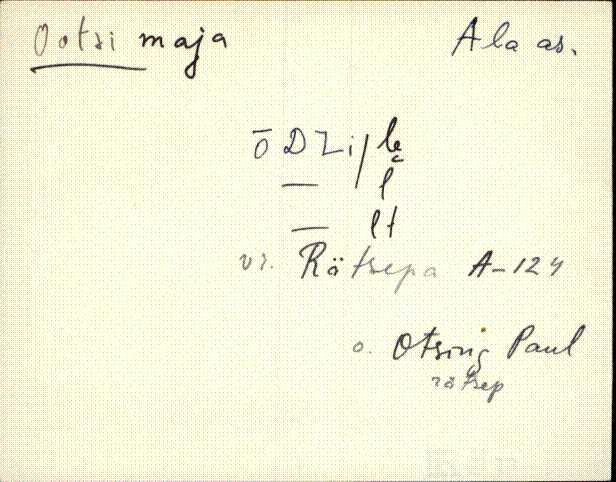 Ootsi maja
Ala as.
ōDZi/le̮
— l
— lt
vr. Rätsepa A-124
o. Otsing Paul
rätsep